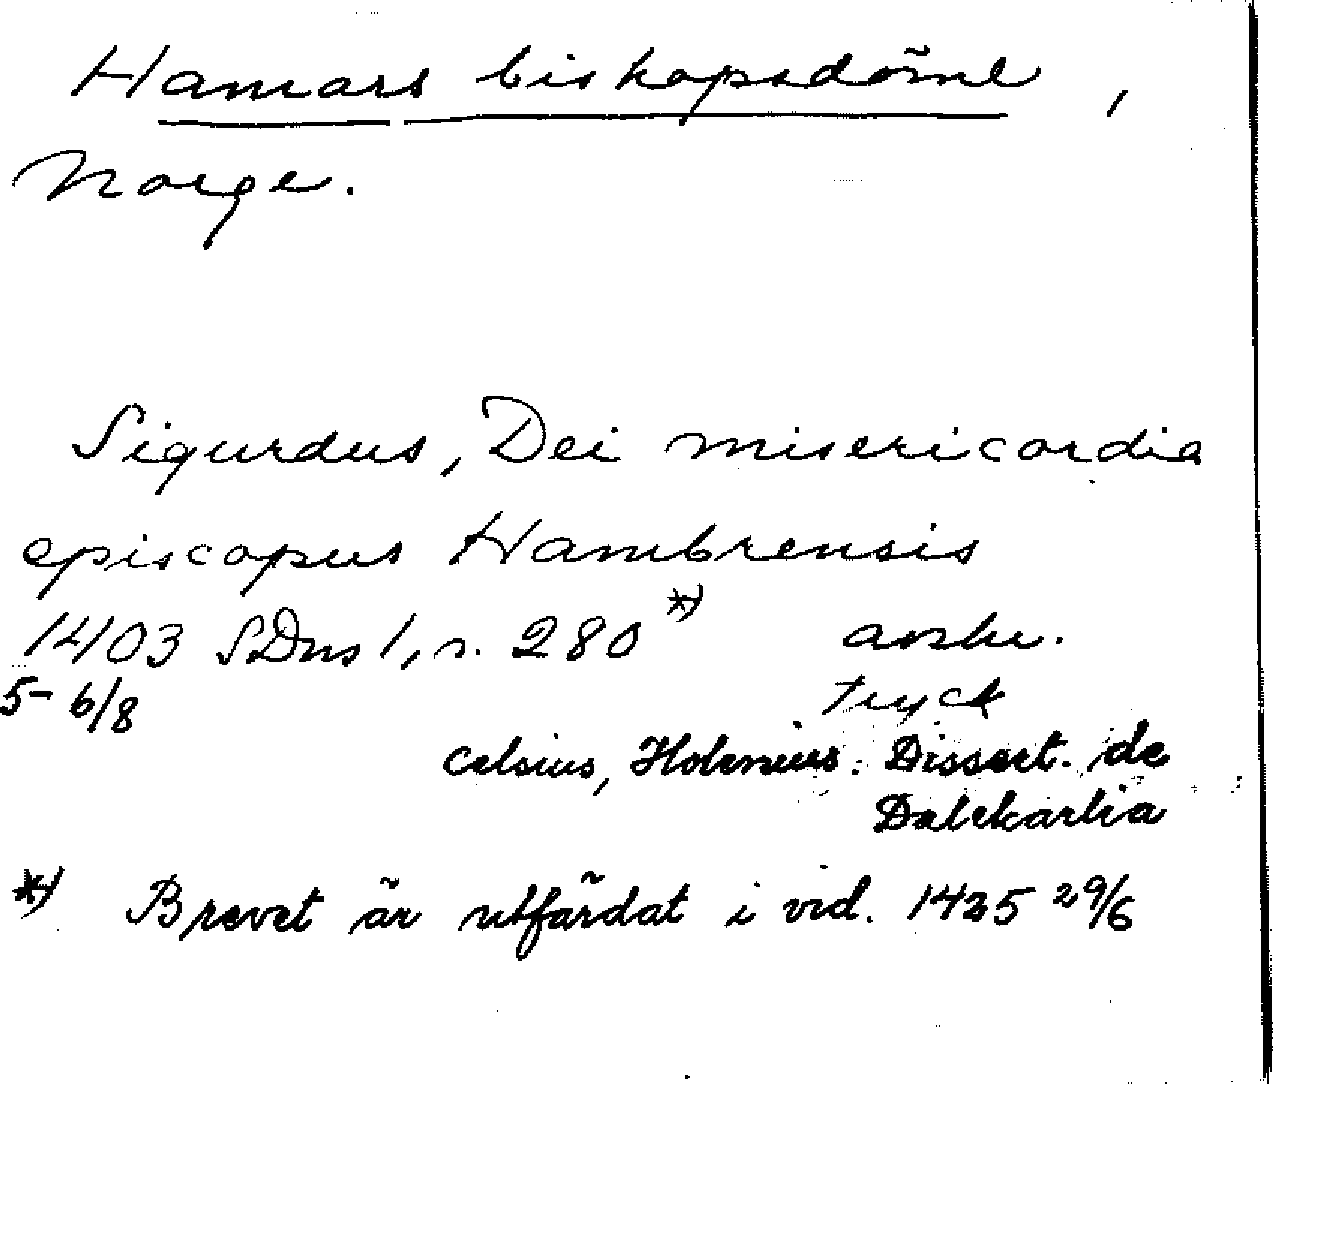 Hamars biskopsdöme,
Norge.
Sigurdus, Dei misericordia
episcopus Hambrensis
1403 SDns 1, s. 280 *)
avskr.
5-6/8
tryck
Celsius, Holenius. Dissert. de
Dalekarlia
*) Brevet är utfärdat i vid. 1425 29/6